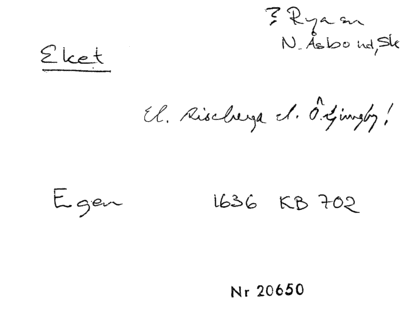 ? Rya sn
N. Åsbo hd, Sk
Eket
el. Riseberga el. Ö. Ljungby!
Egen 1636 KB 702
Nr 20650